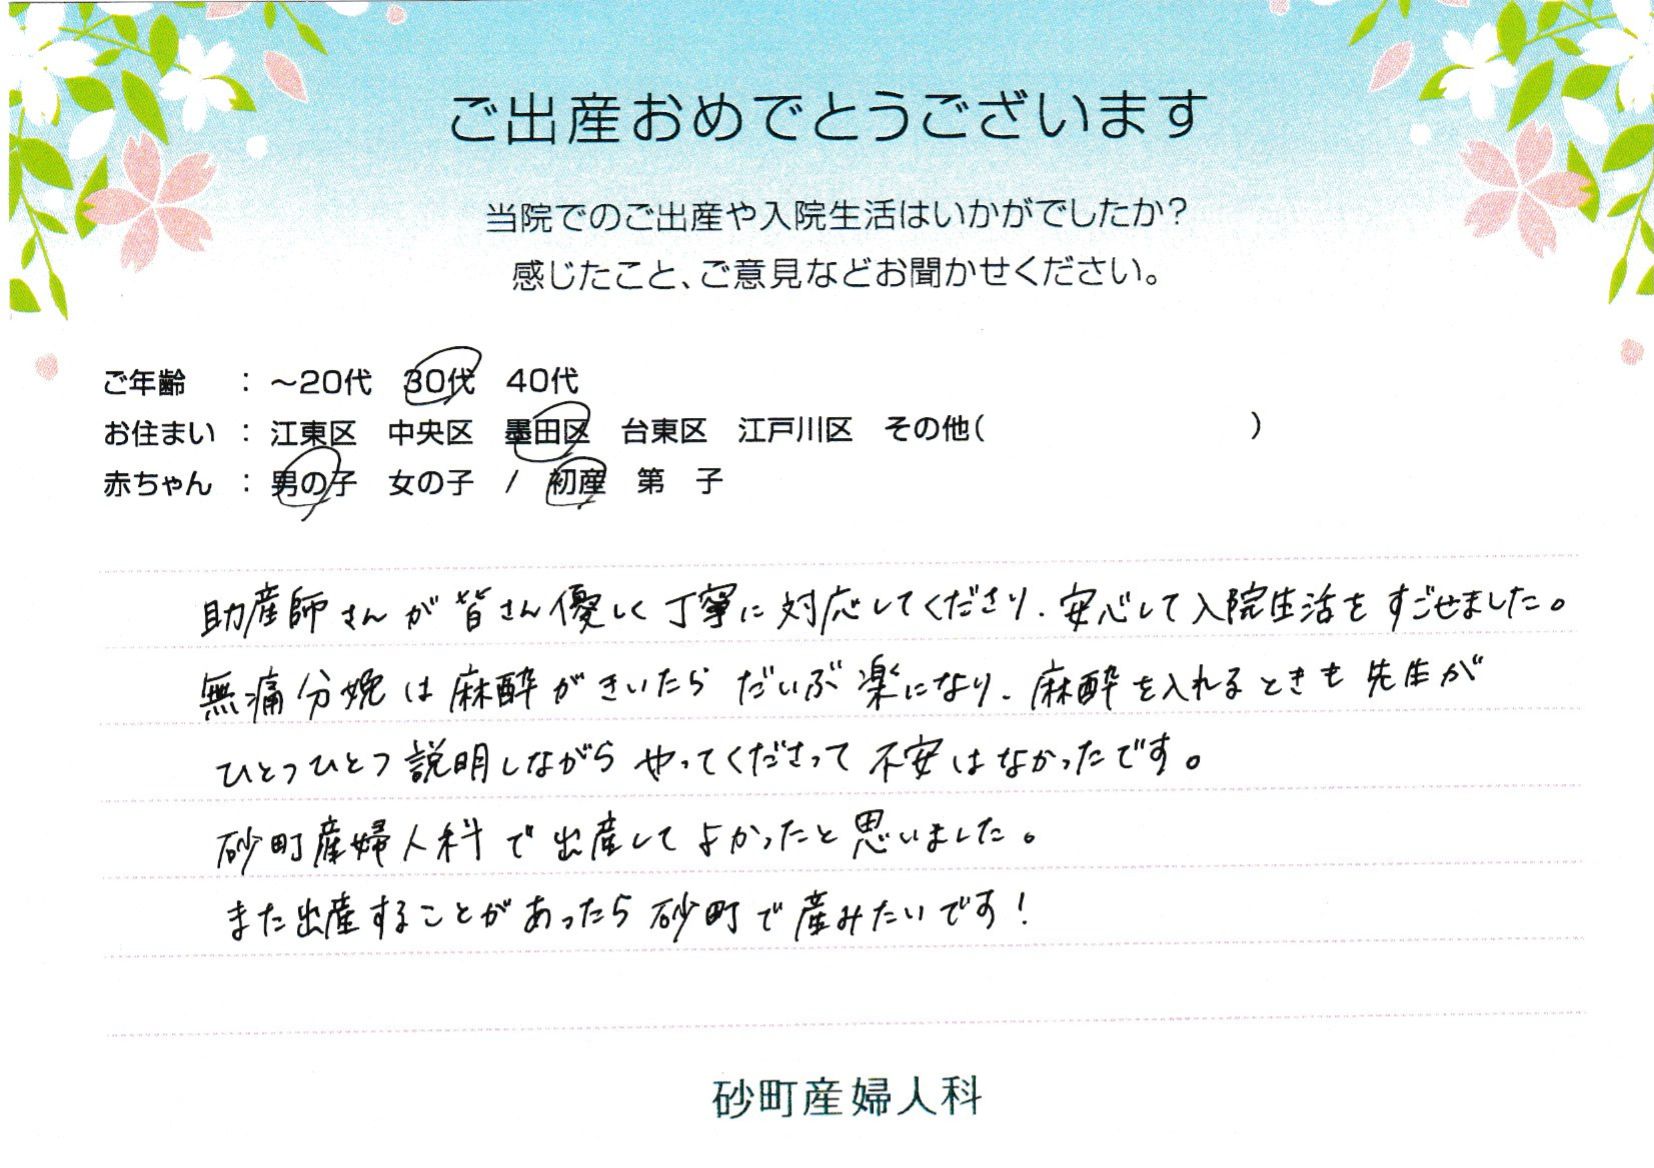 ご出産おめでとうございます
当院でのご出産や入院生活はいかがでしたか?
感じたこと、ご意見などお聞かせください。
ご年齢 : ~20代 30代 40代
お住まい : 江東区 中央区 墨田区 台東区 江戸川区 その他( )
赤ちゃん : 男の子 女の子 / 初産 第 子
助産師さんが皆さん優しく丁寧に対応してくださり、安心して入院生活をすごせました。
無痛分娩は麻酔がきいたらだいぶ楽になり、麻酔を入れるときも先生が
ひとつひとつ説明しながらやってくださって不安はなかったです。
砂町産婦人科で出産してよかったと思いました。
また出産することがあったら砂町で産みたいです!
砂町産婦人科